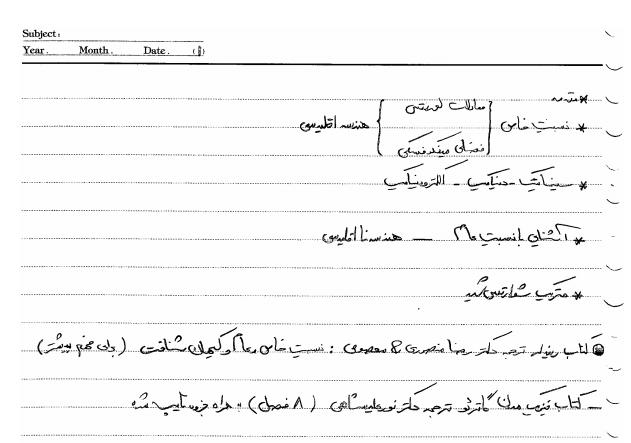 Subject:
Year. Month. Date. ( )
* مقدمه
* نسبیت خاص { معادلات لورنتس
فضای مینکوفسکی } هندسه اقلیدسی
* سینماتیک - دینامیک - الکترودینامیک
* آشنای با نسبیت عام — هندسه نااقلیدسی
* متریک شوارتس شیلد
کتاب ریندلر ترجمه دکتر رضا منصوری & معصومی : نسبیت خاص و عام و کیهان شناخت (برای فهم بیشتر)
- کتاب فیزیک مدرن گاترئو ترجمه دکتر نورعلیشاهی (۸ فصل) همراه جزوه تایپ شده